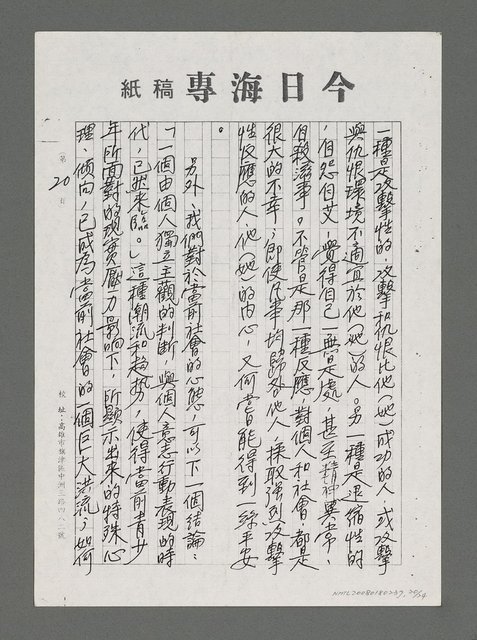 今日海專稿紙
一種是攻擊性的，攻擊和仇恨比他（她）成功的人，或攻擊
與仇恨環境不適宜於他（她）的人。另一種是退縮性的
，自怨自艾，覺得自己一無是處，甚至精神異常，
自殺滋事。不管是那一種反應，對個人和社會，都是
很大的不幸；即使凡事均歸咎他人，採取強烈攻擊
性反應的人，他（她）的內心，又何嘗能得到一絲平安
。
另外，我們對於當前社會的心態，可以下一個結論：
「一個由個人獨立主觀的判斷，與個人意志行動表現的時
代，已然來臨。」這種潮流和趨勢，使得當前青少
年所面對的現實壓力影響下，所顯示出來的特殊心
理、傾向，已成為當前社會的一個巨大洪流；如何
（第20頁
校址：高雄市旗津區中洲三路四八二號
NMTL20080180237, 20/24